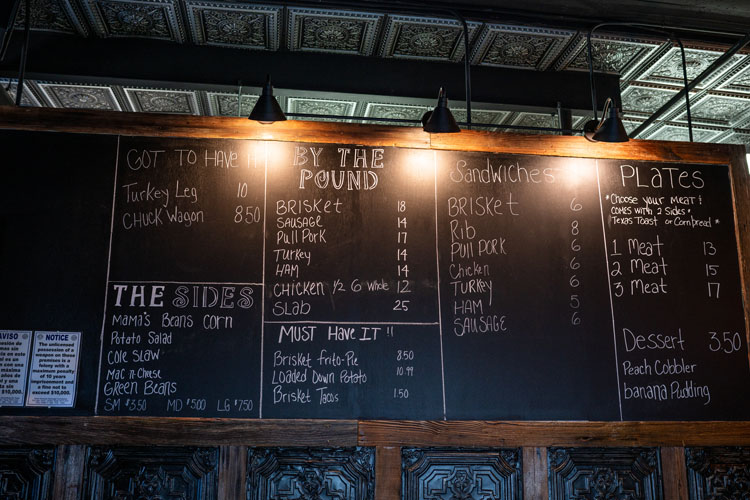 AVISO
NOTICE
The unlicensed
possession of a
weapon on these
premises is a felony
with a
maximum penalty
of 10 years
imprisonment and
a fine not to
exceed $10,000.
GOT TO HAVE IT
Turkey Leg 10
CHUCK WAGON 8.50
THE SIDES
MAMA'S BEANS CORN
POTATO SALAD
COLE SLAW
MAC n-CHEESE
GREEN BEANS
SM $3.50 MD $5.00 LG $7.50
BY THE
POUND
BRISKET 18
SAUSAGE 14
PULL PORK 17
TURKEY 14
HAM 14
CHICKEN 1/2 6 WHOLE 12
SLAB 25
MUST HAVE IT !!
BRISKET FRITO-PIE 8.50
LOADED DOWN POTATO 10.99
BRISKET TACOS 1.50
SANDWICHES
BRISKET 6
Rib 8
PULL PORK 6
Chicken 6
TURKEY 6
HAM 5
SAUSAGE 6
PLATES
*Choose your MEAT!
COMES with 2 Sides*
*Texas Toast or Cornbread*
1 Meat 13
2 Meat 15
3 Meat 17
Dessert 3.50
PEACH COBBLER
banana Pudding